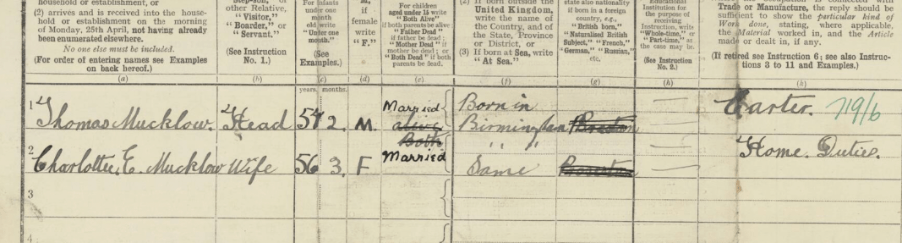 household or establishment, or
(2) arrives and is received into the house-
hold or establishment on the morning
of Monday, 25th April, not having already
been enumerated elsewhere.
No one else must be included.
(For order of entering names see Examples
on back hereof.)
other Relative,
"Visitor,"
"Boarder," or
"Servant."
(See Instruction
No. 1.)
For infants
under one
month
old write
"Under one
month."
(See
Examples.)
female
write
"F."
For children
aged under 15 write
"Both Alive"
if both parents be alive;
"Father Dead"
if father be dead;
"Mother Dead" if
mother be dead; or
"Both Dead" if both
parents be dead.
(2) If born outside the
United Kingdom,
write the name
of the Country, and
of the State, Province
or District, or
(3) If born at Sea, write
"At Sea."
state also nationality
if born in a foreign
country, e.g.,
"British born,"
"Naturalized British
Subject," "French,"
"German," "Russian,"
etc.
for the
purpose of
receiving
Instruction,
write
"Whole-time," or
"Part-time," as
the case may be.
(See Instruction
No. 2.)
Trade or Manufacture, the reply should be
sufficient to show the particular kind of
Work done, stating, where applicable,
the Material worked in, and the Article
made or dealt in, if any.
(If retired see Instruction 6; see also Instruc-
tions 3 to 11 and Examples.)
(a) (b) (c) (d) (e) (f) (g) (h) (k)
years. months.
1 Thomas Mucklow. Head 57 2. M. Married alive Both Born in Birmingham — Carter. 719/6
2 Charlotte, E. Mucklow Wife 56 3. F Married " " Same — Home. Duties.
3
4